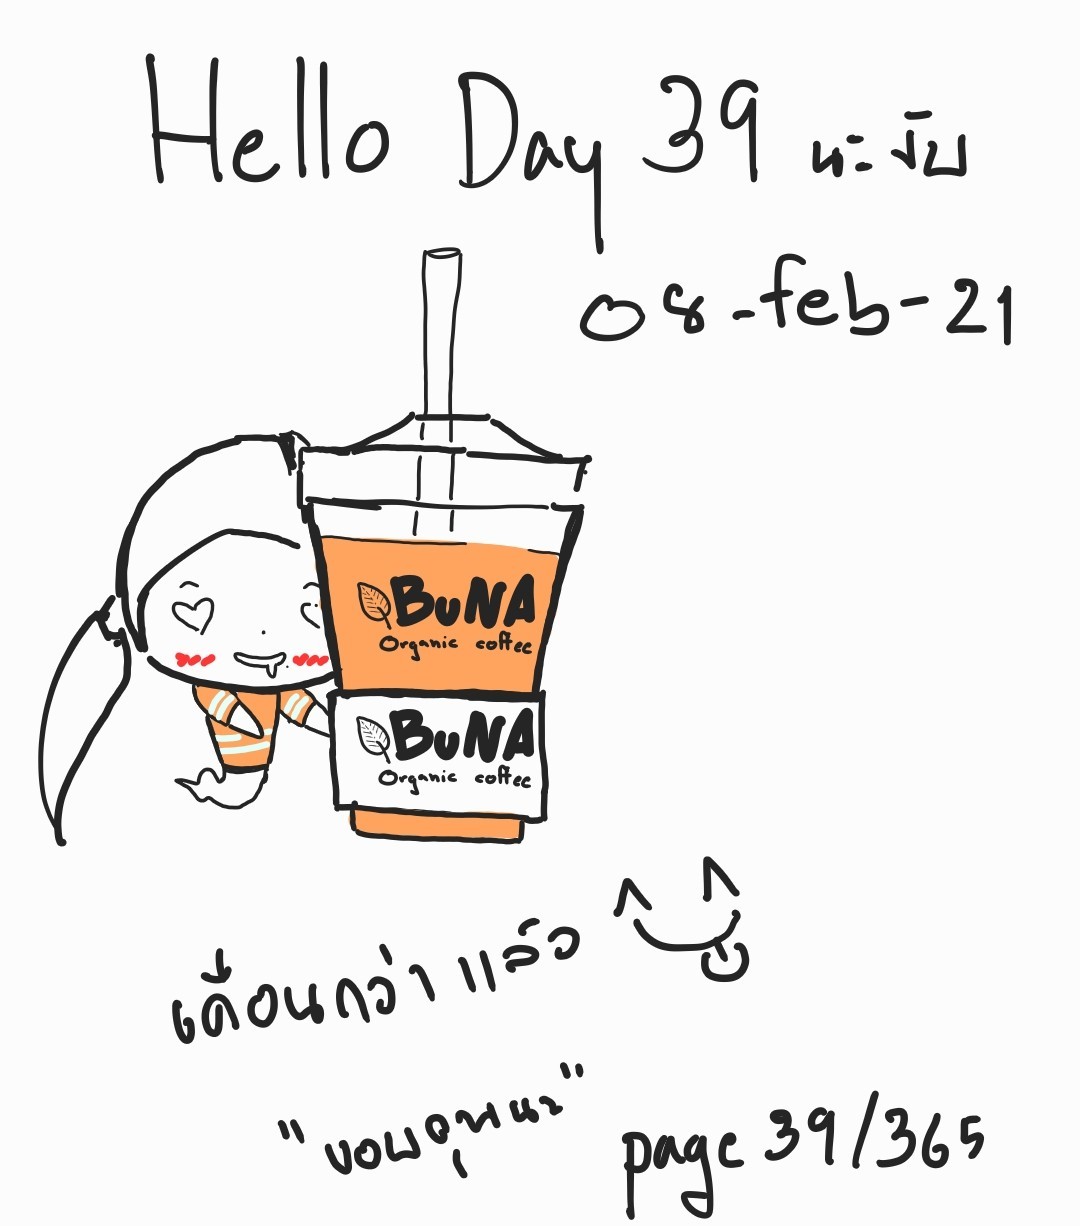 Hello Day 39 นะงับ
08-feb-21
BuNA
Organic coffee
BuNA
Organic coffee
เดือนกว่าแล้ว
"ขอบคุณนะ"
page 39/365